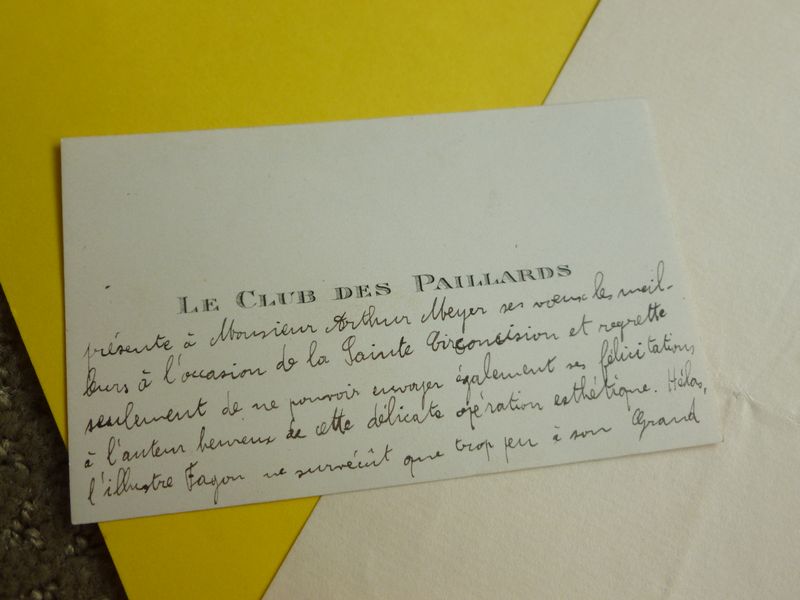 LE CLUB DES PAILLARDS
présente à Monsieur Arthur Meyer ses vœux les meil-
leurs à l'occasion de la Sainte Circoncision et regrette
seulement de ne pouvoir envoyer également ses félicitations
à l'auteur heureux de cette délicate opération esthétique. Hélas,
l'illustre Fagon ne survécût que trop peu à son Grand